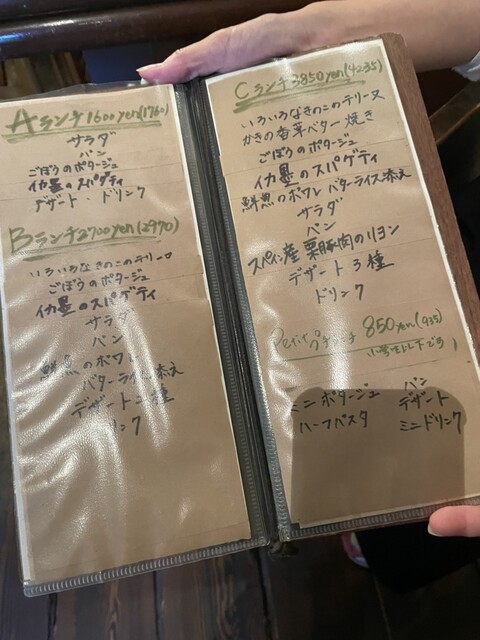 Aランチ1600yen(1760)
サラダ
パン
ごぼうのポタージュ
イカ墨のスパゲティ
デザート・ドリンク
Bランチ2700yen(2970)
いろいろなきのこのテリーヌ
ごぼうのポタージュ
イカ墨のスパゲティ
サラダ
パン
鮮魚のポワレ
バターライス添え
デザート二種
リンク
Cランチ3850yen(4235)
いろいろなきのこのテリーヌ
かきの香草バター焼き
ごぼうのポタージュ
イカ墨のスパゲティ
鮮魚のポワレ バターライス添え
サラダ
パン
スペイン産 栗豚肉のリヨン
デザート3種
ドリンク
Petitプチランチ 850yen(935)
小学生以下です)
ミニポタージュ パン
ハーフパスタ デザート
ミニドリンク